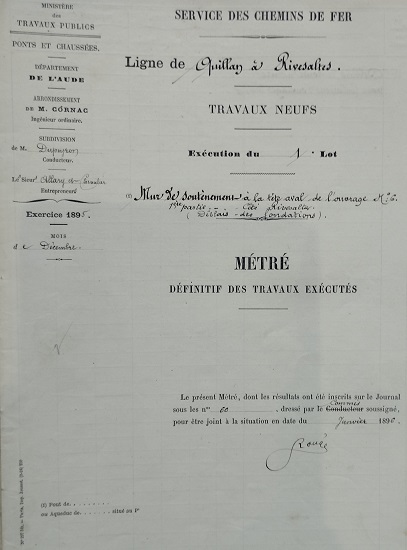 MINISTÈRE
des
TRAVAUX PUBLICS
PONTS ET CHAUSSÉES.
DÉPARTEMENT
DE L'AUDE
ARRONDISSEMENT
DE M. CORNAC
Ingénieur ordinaire.
SUBDIVISION
de M. Dupeyron
Conducteur.
Le Sieur Allary
Entrepreneur
Exercice 1895.
MOIS
de Décembre
SERVICE DES CHEMINS DE FER
Ligne de Quillan à Rivesaltes.
TRAVAUX NEUFS
Exécution du 1er Lot
(1) Mur de soutènement à la tête aval de l'ouvrage No 6.
1ère partie Côté Rivesaltes
(Déblais des fondations).
MÉTRÉ
DÉFINITIF DES TRAVAUX EXÉCUTÉS
Le présent Métré, dont les résultats ont été inscrits sur le Journal
Commis
sous les nos 60, dressé par le Conducteur soussigné,
pour être joint à la situation en date du Janvier 1896.
(1) Pont de
ou Aqueduc de situé au Pt